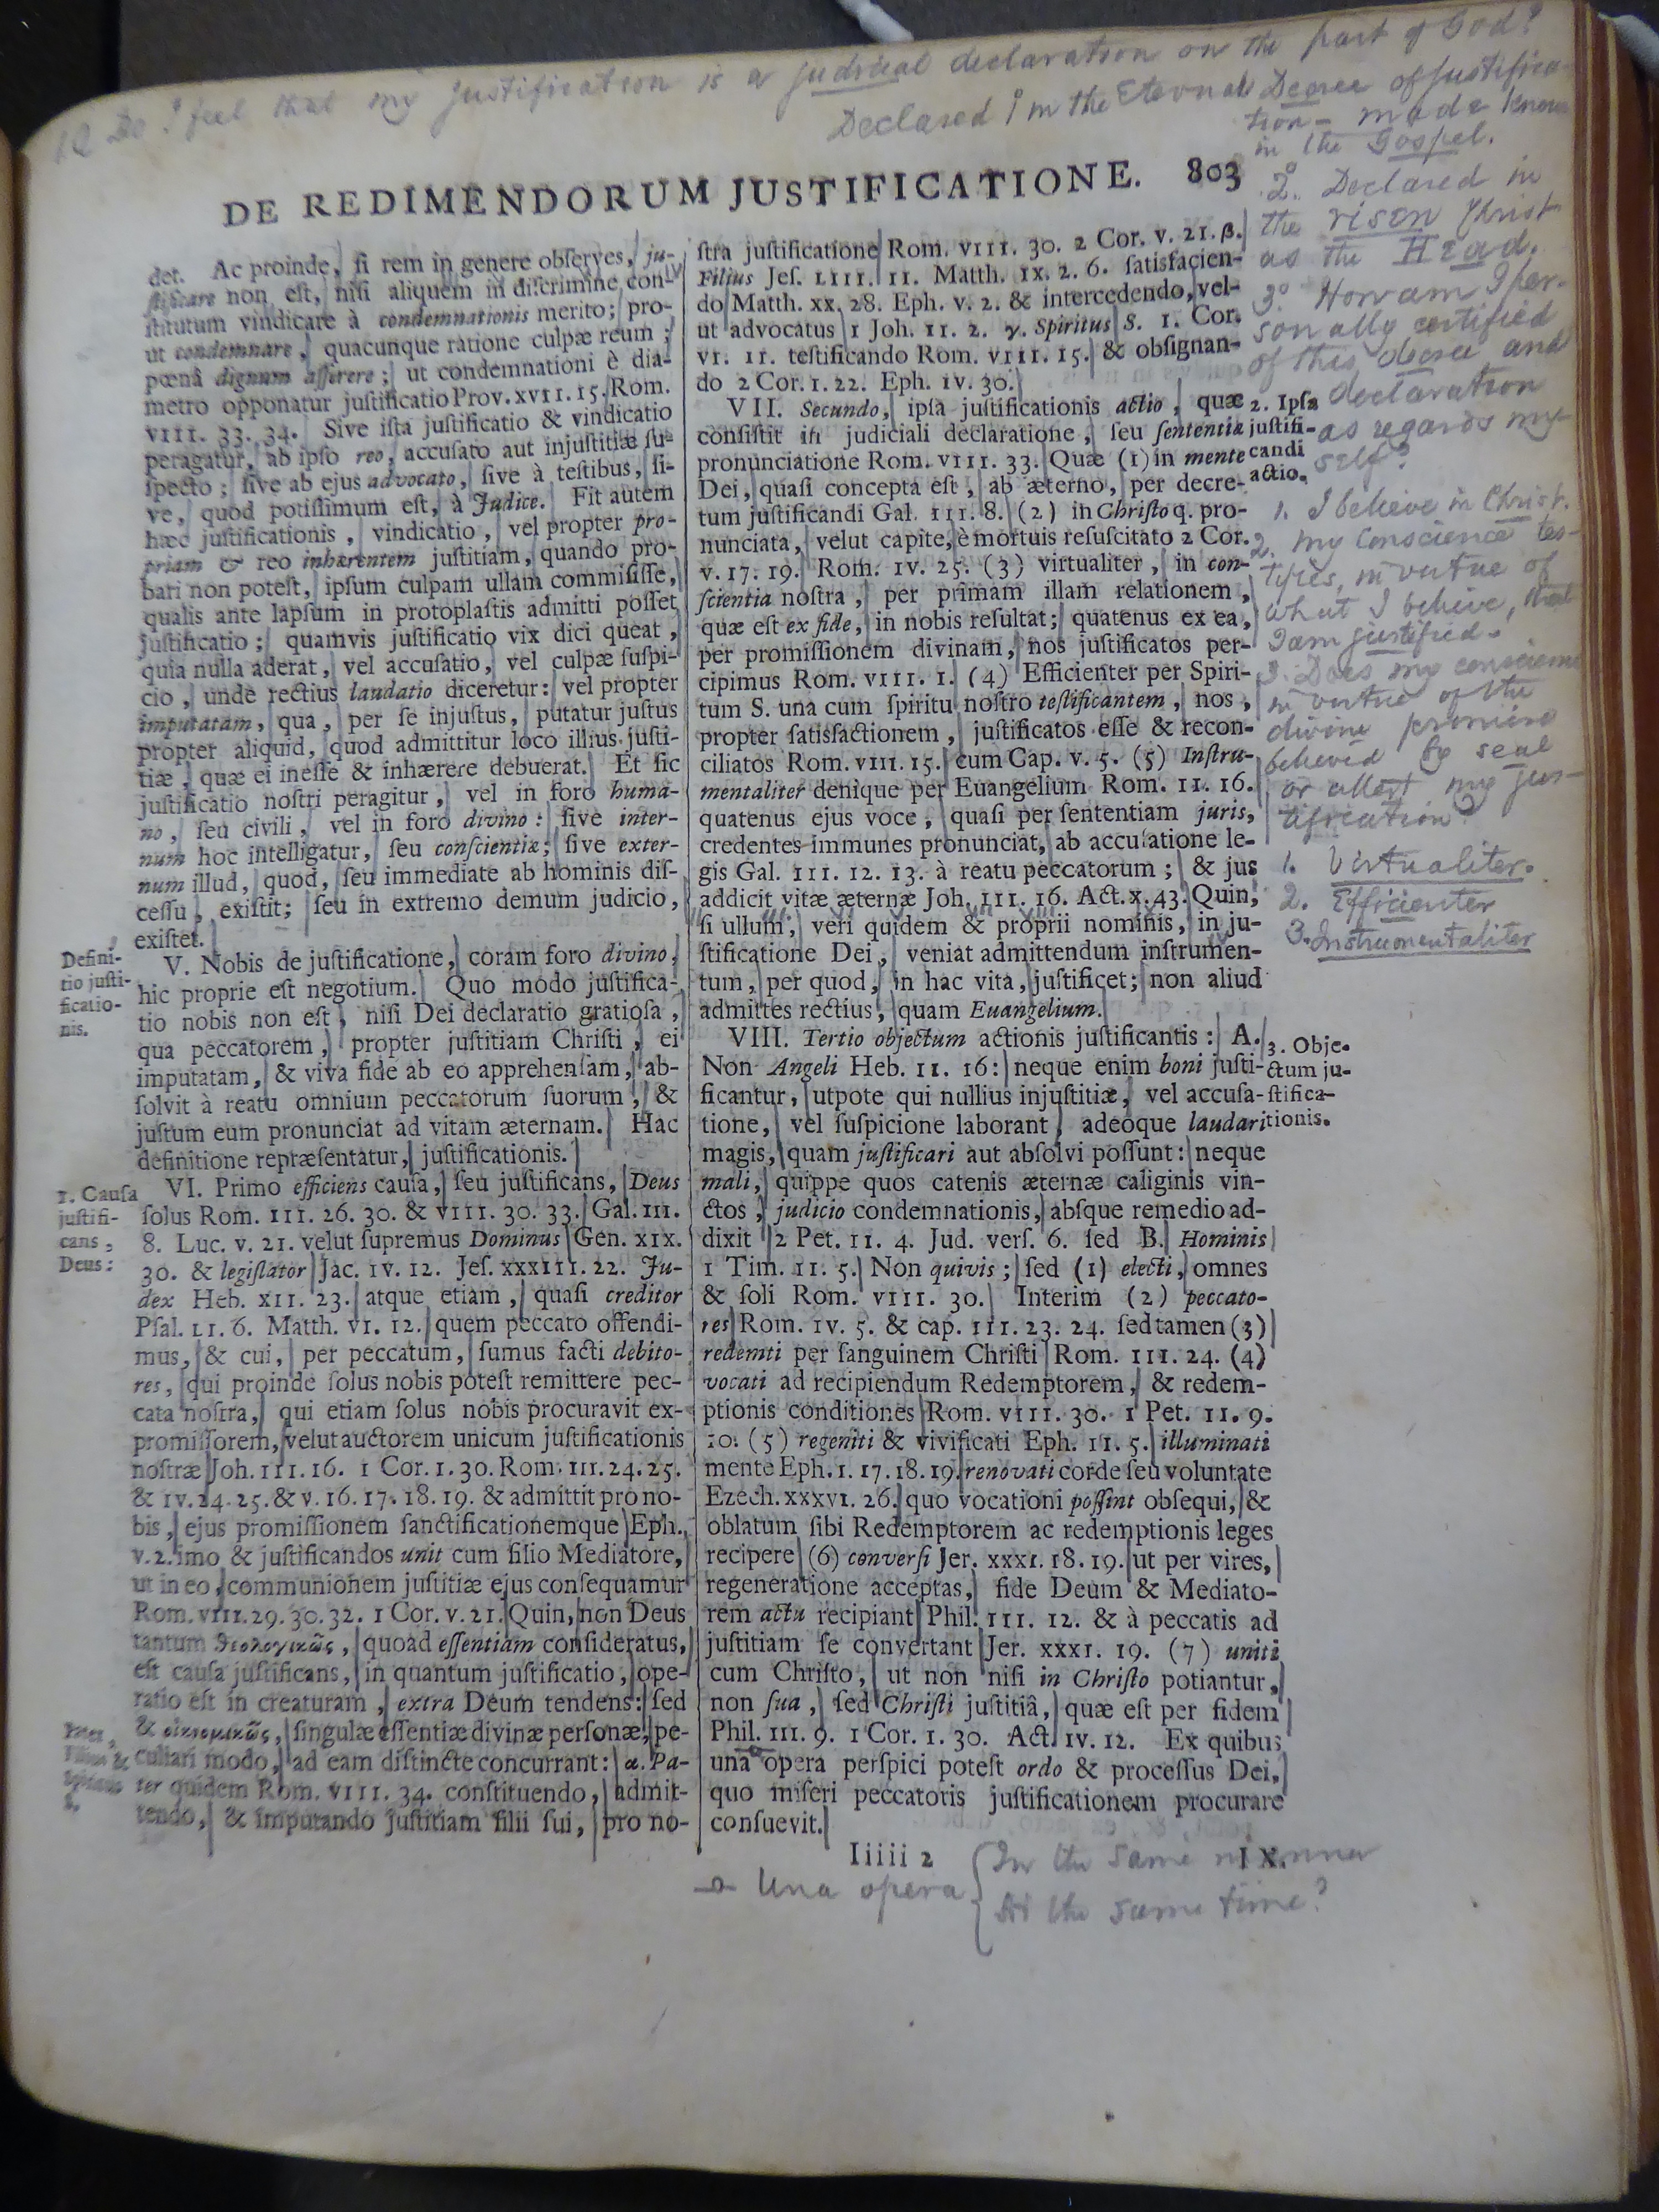 1 Q Do I feel that my justification is a judicial declaration on the part of God?
Declared 1° in the Eternal Decree of justifica-
tion - made known
in the Gospel.
2°. Declared in
the risen Christ
as the Head.
3° How am I per-
sonally certified
of this decree and
declaration
as regards my-
self?
1. I believe in Christ.
2. My conscience tes-
tifies, in virtue of
what I believe, that
I am justified.
3. Does my conscience
in virtue of the
divine promise
believed to seal
or attest my jus-
tification?
1. Virtualiter.
2. Efficienter
3. Instrumentaliter
DE REDIMENDORUM JUSTIFICATIONE. 803
det. Ac proinde, ſi rem in genere obſerves, ju-
ſtificare non eſt, niſi aliquem in diſcrimine con-
ſtitutum vindicare à condemnationis merito; pro-
ut condemnare, quacunque ratione culpæ reum;
pœnâ dignum aſſerere; ut condemnationi è dia-
metro opponatur juſtificatio Prov. XVII. 15. Rom.
VIII. 33. 34. Sive iſta juſtificatio & vindicatio
peragatur, ab ipſo reo, accuſato aut injuſtitiæ ſu-
ſpecto; ſive ab ejus advocato, ſive à teſtibus, ſi-
ve, quod potiſſimum eſt, à Judice. Fit autem
hæc juſtificationis, vindicatio, vel propter pro-
priam & reo inhærentem juſtitiam, quando pro-
bari non poteſt, ipſum culpam ullam commiſiſſe,
qualis ante lapſum in protoplaſtis admitti poſſet
juſtificatio; quamvis juſtificatio vix dici queat,
quia nulla aderat, vel accuſatio, vel culpæ ſuſpi-
cio, unde rectius laudatio diceretur: vel propter
imputatam, qua, per ſe injuſtus, putatur juſtus
propter aliquid, quod admittitur loco illius juſti-
tiæ, quæ ei ineſſe & inhærere debuerat. Et ſic
juſtificatio noſtri peragitur, vel in foro huma-
no, ſeu civili, vel in foro divino: ſive inter-
num hoc intelligatur, ſeu conſcientiæ; ſive exter-
num illud, quod, ſeu immediate ab hominis diſ-
ceſſu, exiſtit; ſeu in extremo demum judicio,
exiſtet.
Defini-
tio juſti-
ficatio-
nis.
V. Nobis de juſtificatione, coram foro divino,
hic proprie eſt negotium. Quo modo juſtifica-
tio nobis non eſt, niſi Dei declaratio gratioſa,
qua peccatorem, propter juſtitiam Chriſti, ei
imputatam, & viva fide ab eo apprehenſam, ab-
ſolvit à reatu omnium peccatorum ſuorum, &
juſtum eum pronunciat ad vitam æternam. Hac
definitione repræſentatur, juſtificationis.
1. Cauſa
juſtifi-
cans,
Deus:
VI. Primo efficiens cauſa, ſeu juſtificans, Deus
ſolus Rom. III. 26. 30. & VIII. 30. 33. Gal. III.
8. Luc. V. 21. velut ſupremus Dominus Gen. XIX.
30. & legiſlator Jac. IV. 12. Jeſ. XXXIII. 22. Ju-
dex Heb. XII. 23. atque etiam, quaſi creditor
Pſal. LI. 6. Matth. VI. 12. quem peccato offendi-
mus, & cui, per peccatum, ſumus facti debito-
res, qui proinde ſolus nobis poteſt remittere pec-
cata noſtra, qui etiam ſolus nobis procuravit ex-
promiſſorem, velut auctorem unicum juſtificationis
noſtræ Joh. III. 16. 1 Cor. I. 30. Rom. III. 24. 25.
& IV. 24. 25. & V. 16. 17. 18. 19. & admittit pro no-
bis, ejus promiſſionem ſanctificationemque Eph.
V. 2. imo & juſtificandos unit cum filio Mediatore,
ut in eo, communionem juſtitiæ ejus conſequamur
Rom. VIII. 29. 30. 32. 1 Cor. V. 21. Quin, non Deus
tantum θεολογικῶς, quoad eſſentiam conſideratus,
eſt cauſa juſtificans, in quantum juſtificatio, ope-
ratio eſt in creaturam, extra Deum tendens: ſed
Pater,
Filius &
Spiritus
S.
& οἰκονομικῶς, ſingulæ eſſentiæ divinæ perſonæ, pe-
culiari modo, ad eam diſtincte concurrant: α. Pa-
ter quidem Rom. VIII. 34. conſtituendo, admit-
tendo, & imputando juſtitiam filii ſui, pro no-
ſtra juſtificatione Rom. VIII. 30. 2 Cor. V. 21. β.
Filius Jeſ. LIII. 11. Matth. IX. 2. 6. ſatisfacien-
do Matth. XX. 28. Eph. V. 2. & intercedendo, vel-
ut advocatus 1 Joh. II. 2. γ. Spiritus S. 1. Cor.
VI. 11. teſtificando Rom. VIII. 15. & obſignan-
do 2 Cor. I. 22. Eph. IV. 30.
VII. Secundo, ipſa juſtificationis actio, quæ
conſiſtit in judiciali declaratione, ſeu ſententiæ
pronunciatione Rom. VIII. 33. Quæ (1) in mente
Dei, quaſi concepta eſt, ab æterno, per decre-
tum juſtificandi Gal. III. 8. (2) in Chriſto q. pro-
nunciata, velut capite, è mortuis reſuſcitato 2 Cor.
V. 17. 19. Rom. IV. 25. (3) virtualiter, in con-
ſcientia noſtra, per primam illam relationem,
quæ eſt ex fide, in nobis reſultat; quatenus ex ea,
per promiſſionem divinam, nos juſtificatos per-
cipimus Rom. VIII. 1. (4) Efficienter per Spiri-
tum S. una cum ſpiritu noſtro teſtificantem, nos,
propter ſatisfactionem, juſtificatos eſſe & recon-
ciliatos Rom. VIII. 15. cum Cap. V. 5. (5) Inſtru-
mentaliter denique per Euangelium Rom. II. 16.
quatenus ejus voce, quaſi per ſententiam juris,
credentes immunes pronunciat, ab accuſatione le-
gis Gal. III. 12. 13. à reatu peccatorum; & jus
addicit vitæ æternæ Joh. III. 16. Act. X. 43. Quin,
ſi ullum, veri quidem & proprii nominis, in ju-
ſtificatione Dei, veniat admittendum inſtrumen-
tum, per quod, in hac vita, juſtificet; non aliud
admittes rectius, quam Euangelium.
2. Ipſa
juſtifi-
candi
actio.
VIII. Tertio objectum actionis juſtificantis: A.
Non Angeli Heb. II. 16: neque enim boni juſti-
ficantur, utpote qui nullius injuſtitiæ, vel accuſa-
tione, vel ſuſpicione laborant, adeoque laudari
magis, quam juſtificari aut abſolvi poſſunt: neque
mali, quippe quos catenis æternæ caliginis vin-
ctos, judicio condemnationis, abſque remedio ad-
dixit 2 Pet. II. 4. Jud. verſ. 6. ſed B. Hominis
1 Tim. II. 5. Non quivis; ſed (1) electi, omnes
& ſoli Rom. VIII. 30. Interim (2) peccato-
res Rom. IV. 5. & cap. III. 23. 24. ſed tamen (3)
redemti per ſanguinem Chriſti Rom. III. 24. (4)
vocati ad recipiendum Redemptorem, & redem-
ptionis conditiones Rom. VIII. 30. 1 Pet. II. 9.
10. (5) regeniti & vivificati Eph. II. 5. illuminati
mente Eph. I. 17. 18. 19. renovati corde ſeu voluntate
Ezech. XXXVI. 26. quo vocationi poſſint obſequi, &
oblatum ſibi Redemptorem ac redemptionis leges
recipere (6) converſi Jer. XXXI. 18. 19. ut per vires,
regeneratione acceptas, fide Deum & Mediato-
rem actu recipiant Phil. III. 12. & à peccatis ad
juſtitiam ſe convertant Jer. XXXI. 19. (7) uniti
cum Chriſto, ut non niſi in Chriſto potiantur,
non ſua, ſed Chriſti juſtitiâ, quæ eſt per fidem
Phil. III. 9. 1 Cor. I. 30. Act. IV. 12. Ex quibus
una opera perſpici poteſt ordo & proceſſus Dei,
quo miſeri peccatoris juſtificationem procurare
conſuevit.
3. Obje-
ctum ju-
ſtifica-
tionis.
Iiiii 2
IX.
Una opera { In the same manner
At the same time?